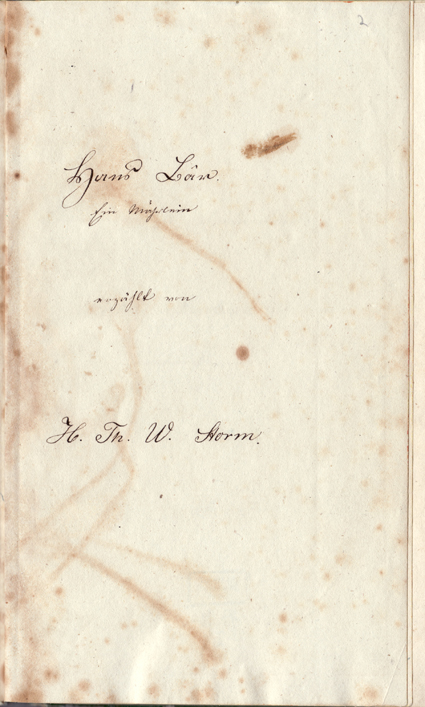 2
Hans Bär.
Ein Mährlein
erzählt von
H. Th. W. Storm.